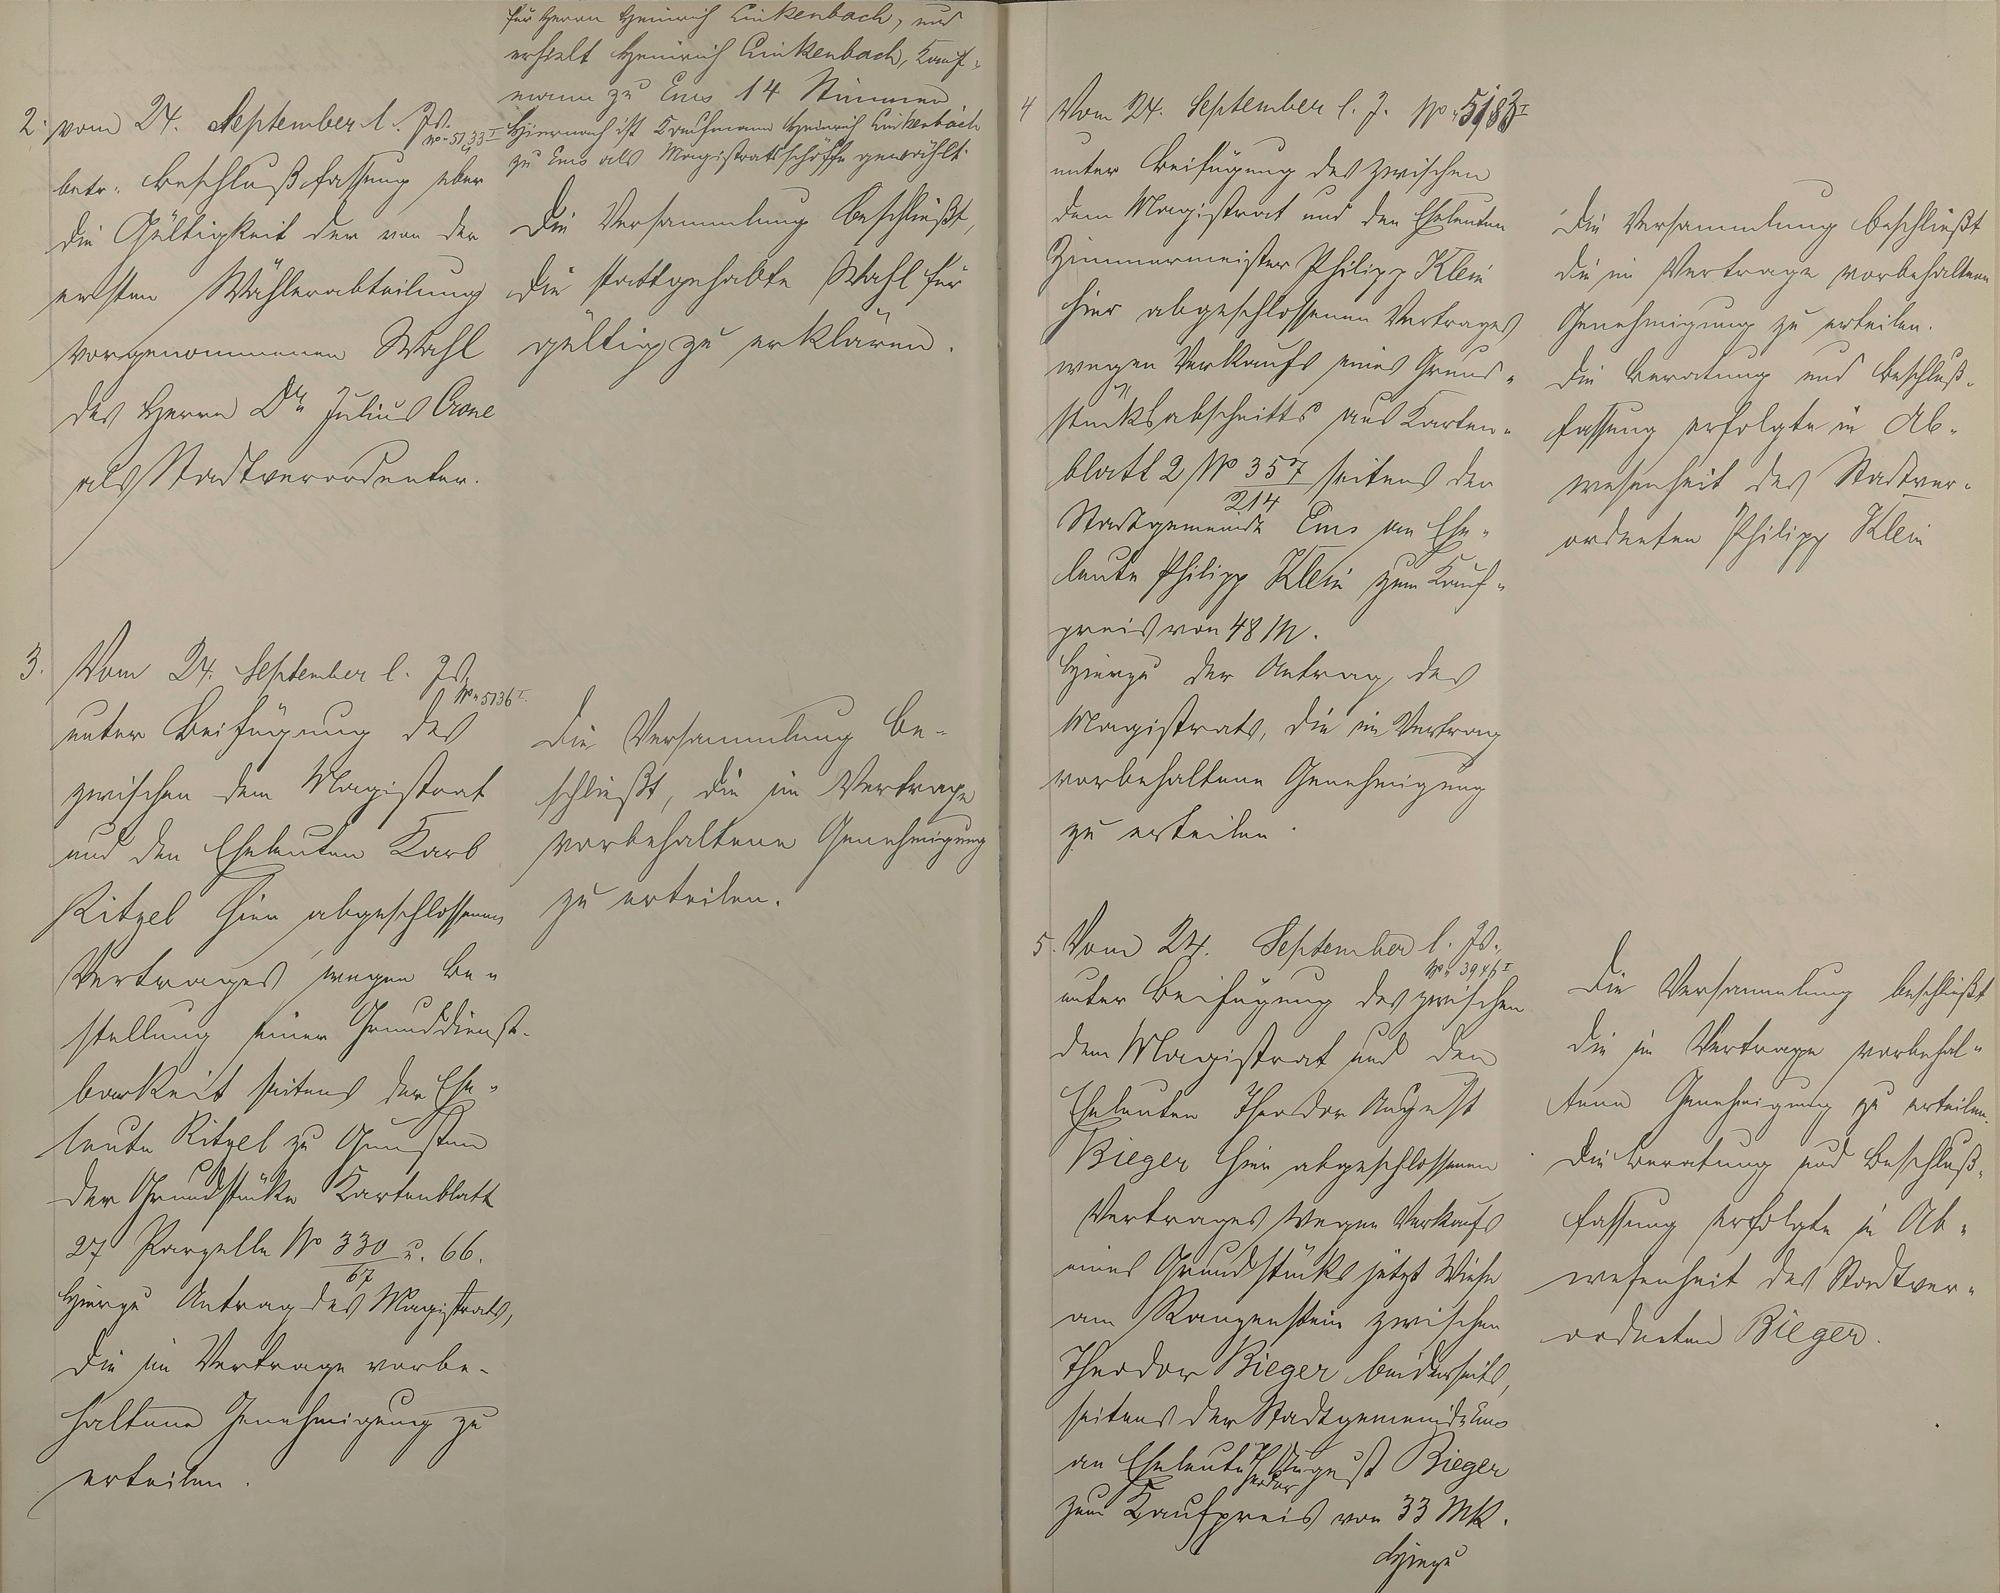 für Herrn Heinrich Linkenbach, und
erhielt Heinrich Linkenbach, Kauf-
mann zu Ems 14 Stimmen
Hiernach ist Kaufmann Heinrich Linkenbach
zu Ems als Magistratsschöffe gewählt.
2. vom 24. September l. Js.
No 5133 I
betr. Beschlußfassung über
die Gültigkeit der von der
ersten Wählerabteilung
vorgenommenen Wahl
des Herrn Dr. Julius Crone
als Stadtverordneter.
Die Versammlung beschließt,
die stattgehabte Wahl für
gültig zu erklären.
3. Vom 24. September l. Js.
No 5136 I.
unter Beifügung des
zwischen dem Magistrat
und den Eheleuten Karl
Ritzel hier abgeschlossenen
Vertrages wegen Be-
stellung einer Grunddienst-
barkeit seitens der Ehe-
leute Ritzel zu Gunsten
der Grundstücke Kartenblatt
27 Parzelle No 330/67 u. 66.
Hierzu Antrag des Magistrats,
die im Vertrage vorbe-
haltene Genehmigung zu
erteilen.
Die Versammlung be-
schließt, die im Vertrage
vorbehaltene Genehmigung
zu erteilen.
4 Vom 24. September l. J. No 5183 I
unter Beifügung des zwischen
dem Magistrat und den Eheleuten
Zimmermeister Philipp Klein
hier abgeschlossenen Vertrages
wegen Verkaufs eines Grund-
stücksabschnitts aus Karten-
blatt 2 No 357/214 seitens der
Stadtgemeinde Ems an Ehe-
leute Philipp Klein zum Kauf-
preis von 48 M.
Hierzu der Antrag des
Magistrats, die im Vertrag
vorbehaltene Genehmigung
zu erteilen.
Die Versammlung beschließt
die im Vertrage vorbehaltene
Genehmigung zu erteilen.
Die Beratung und Beschluß-
fassung erfolgte in Ab-
wesenheit des Stadtver-
ordneten Philipp Klein
5. Vom 24. September l. Js.,
No 3946 I
unter Beifügung des zwischen
dem Magistrat und den
Eheleuten Theodor August
Bieger hier abgeschlossenen
Vertrages wegen Verkaufs
eines Grundstücks jetzt Wiese
am zwischen
Theodor Bieger beiderseits,
seitens der Stadtgemeinde Ems
an Eheleute Theodor August Bieger
zum Kaufpreis von 33 Mk.
Hierzu
Die Versammlung beschließt
die im Vertrage vorbehal-
tene Genehmigung zu erteilen.
Die Beratung und Beschluß-
fassung erfolgte in Ab-
wesenheit des Stadtver-
ordneten Bieger.